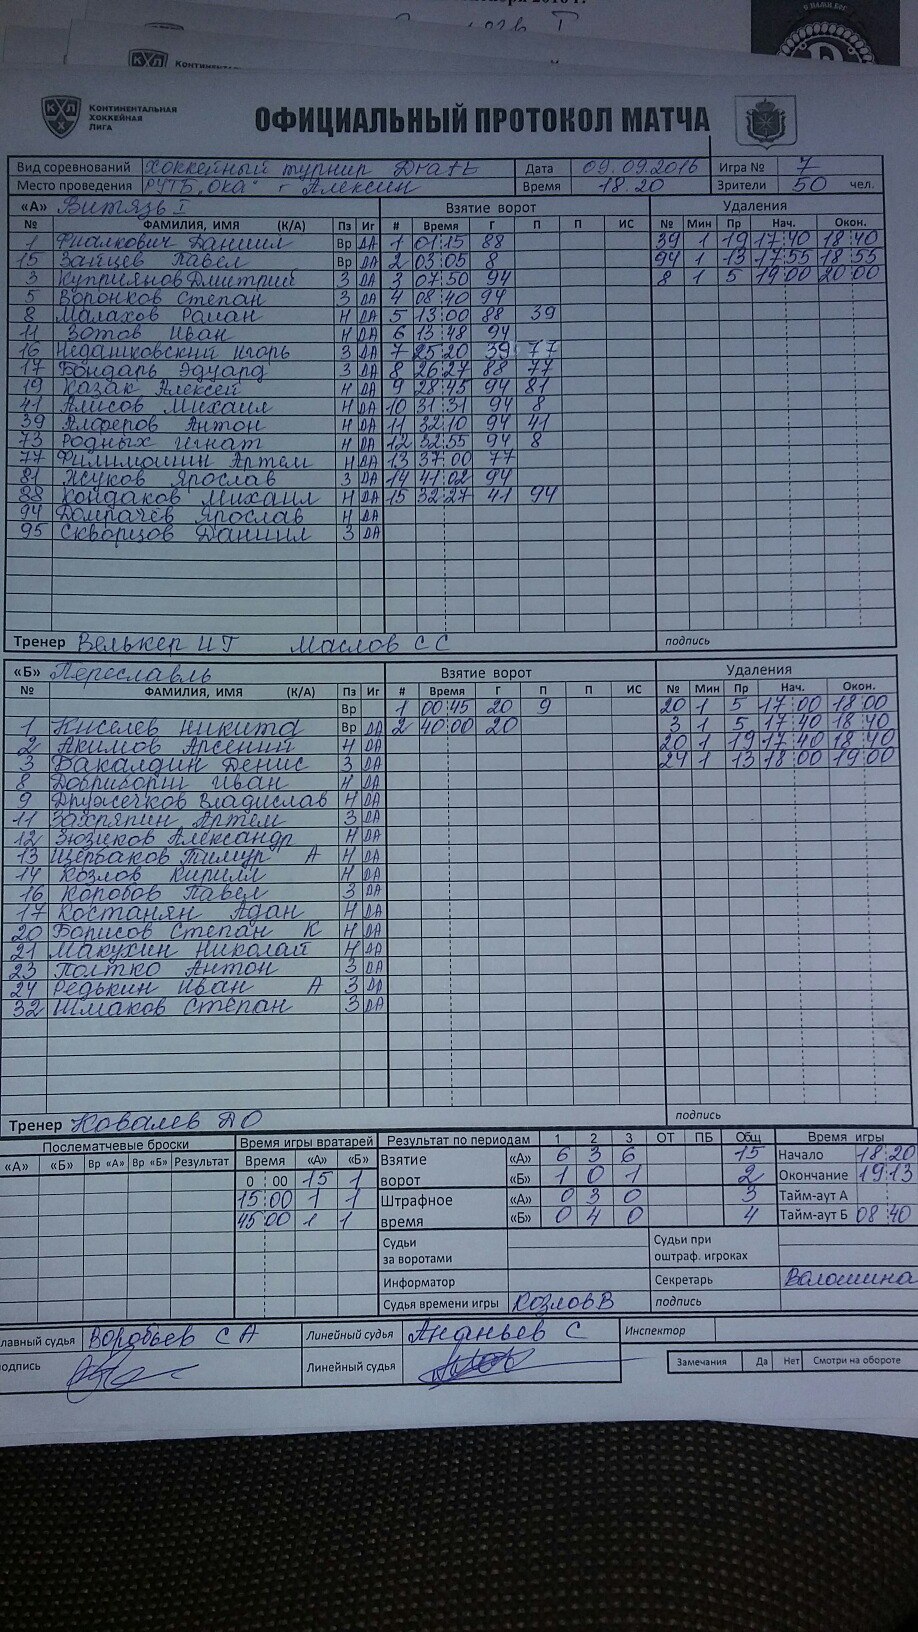 КОНТИНЕНТАЛЬНАЯ
ХОККЕЙНАЯ
ЛИГА
ОФИЦИАЛЬНЫЙ ПРОТОКОЛ МАТЧА
Вид соревнований Хоккейный турнир Draft Дата 09.09.2016 Игра № 7
Место проведения РУТБ "Ока" г Алексин Время 18.20 Зрители 50 чел.
«А» Витязь I Взятие ворот Удаления
№ ФАМИЛИЯ, ИМЯ (К/А) Пз Иг # Время Г П П ИС № Мин Пр Нач. Окон.
1 Фиалкович Даниил Вр ДА 1 01:15 88 39 1 19 17:40 18:40
15 Зайцев Павел Вр ДА 2 03:05 8 94 1 13 17:55 18:55
3 Куприянов Дмитрий З ДА 3 07:50 94 8 1 5 19:00 20:00
5 Воронков Степан З ДА 4 08:40 94
8 Малахов Роман Н ДА 5 13:00 88 39
11 Зотов Иван Н ДА 6 13:48 94
16 Недашковский Игорь З ДА 7 25:20 39 77
17 Бондарь Эдуард З ДА 8 26:27 88 77
19 Казак Алексей Н ДА 9 28:45 94 81
41 Алисов Михаил Н ДА 10 31:31 94 8
39 Алферов Антон Н ДА 11 32:10 94 41
73 Родных Игнат Н ДА 12 32:55 94 8
77 Филимошин Артем Н ДА 13 37:00 77
81 Жуков Ярослав З ДА 14 41:02 94
88 Койдаков Михаил Н ДА 15 32:27 41 94
94 Домрачев Ярослав Н ДА
95 Скворцов Даниил З ДА
Тренер Велькер ИГ Маслов С С подпись
«Б» Переславль Взятие ворот Удаления
№ ФАМИЛИЯ, ИМЯ (К/А) Пз Иг # Время Г П П ИС № Мин Пр Нач. Окон.
Вр 1 00:45 20 9 20 1 5 17:00 18:00
1 Киселев Никита Вр ДА 2 40:00 20 3 1 5 17:40 18:40
2 Акимов Арсений Н ДА 20 1 19 17:40 18:40
3 Бакалдин Денис З ДА 24 1 13 18:00 19:00
8 Добригорш Иван Н ДА
9 Дружечков Владислав Н ДА
11 Захряпин Артем З ДА
12 Зюзиков Александр Н ДА
13 Щербаков Тимур А Н ДА
14 Козлов Кирилл Н ДА
16 Коробов Павел З ДА
17 Костанян Адан Н ДА
20 Борисов Степан К Н ДА
21 Макухин Николай Н ДА
23 Полтко Антон З ДА
24 Редькин Иван А З ДА
32 Шмаков Степан З ДА
Тренер Ковалев ДО подпись
Послематчевые броски Время игры вратарей Результат по периодам 1 2 3 ОТ ПБ Общ Время игры
«А» «Б» Вр «А» Вр «Б» Результат Время «А» «Б» Взятие ворот «А» 6 3 6 15 Начало 18:20
0 00 15 1 «Б» 1 0 1 2 Окончание 19:13
15:00 1 1 Штрафное время «А» 0 3 0 3 Тайм-аут А
45:00 1 1 «Б» 0 4 0 4 Тайм-аут Б 08:40
Судьи за воротами Судьи при оштраф. игроках
Информатор Секретарь Волошина
Судья времени игры Козлов В подпись
главный судья Воробьев С А Линейный судья Ананьев С Инспектор
подпись Линейный судья Замечания Да Нет Смотри на обороте